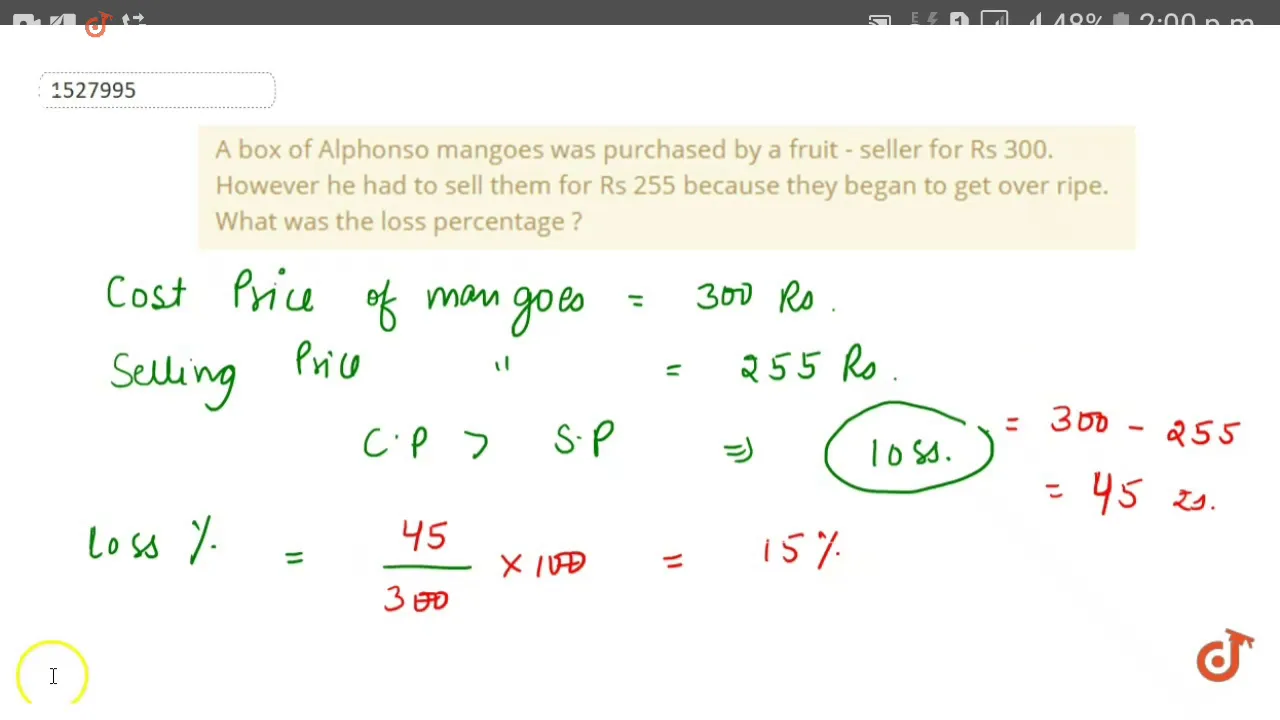 48% 2:00 p.m
1527995
A box of Alphonso mangoes was purchased by a fruit - seller for Rs 300.
However he had to sell them for Rs 255 because they began to get over ripe.
What was the loss percentage ?
Cost Price of mangoes = 300 Rs.
Selling Price " = 255 Rs.
C.P > S.P ⇒ loss. = 300 - 255
= 45 rs.
loss % = 45/300 × 100 = 15%